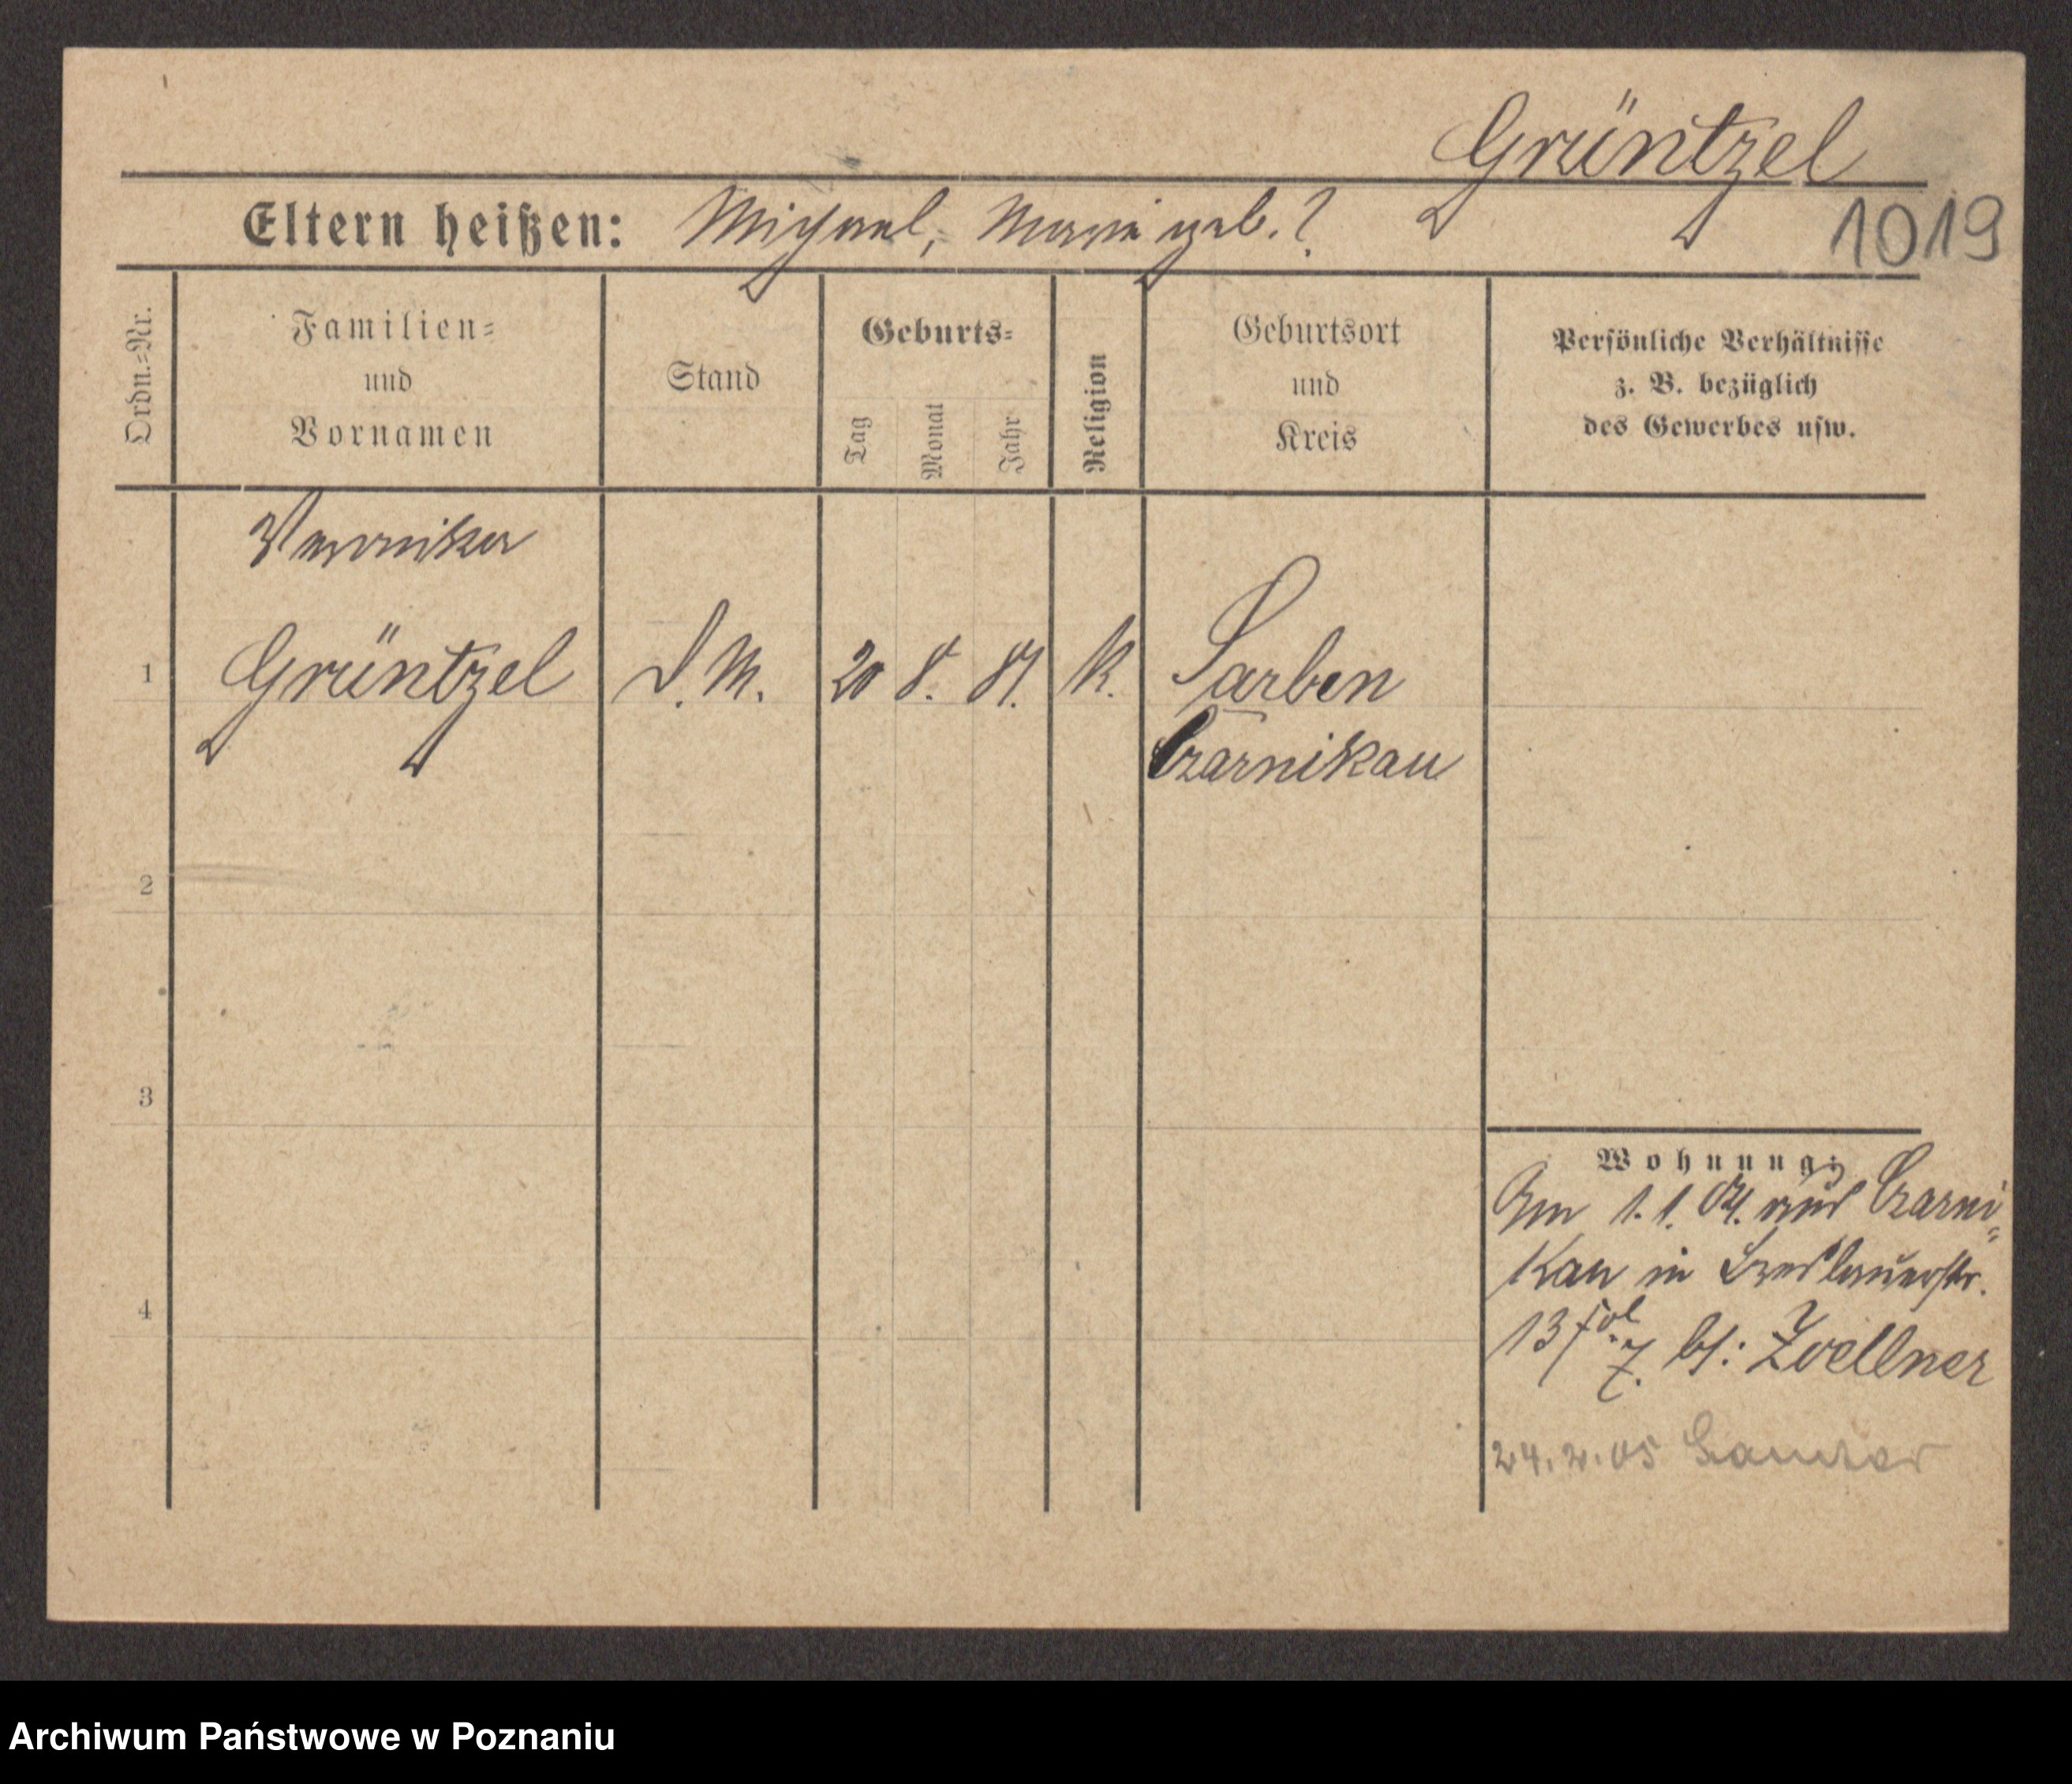 Grüntzel
Eltern heißen: Michael, Marie geb. ?
1019
Ordn.=Nr.
Familien=
und
Vornamen
Stand
Geburts=
Tag
Monat
Jahr
Religion
Geburtsort
und
Kreis
Persönliche Verhältnisse
z. B. bezüglich
des Gewerbes usw.
Veronika
1 Grüntzel D. M. 20 8. 81. K. Sarben
Czarnikau
2
3
Wohnung:
Am 1. 1. 04. aus Czarni=
kau in Breslauerstr.
4
13 bei: Zoellner
24. 2. 05 Samter
Archiwum Państwowe w Poznaniu